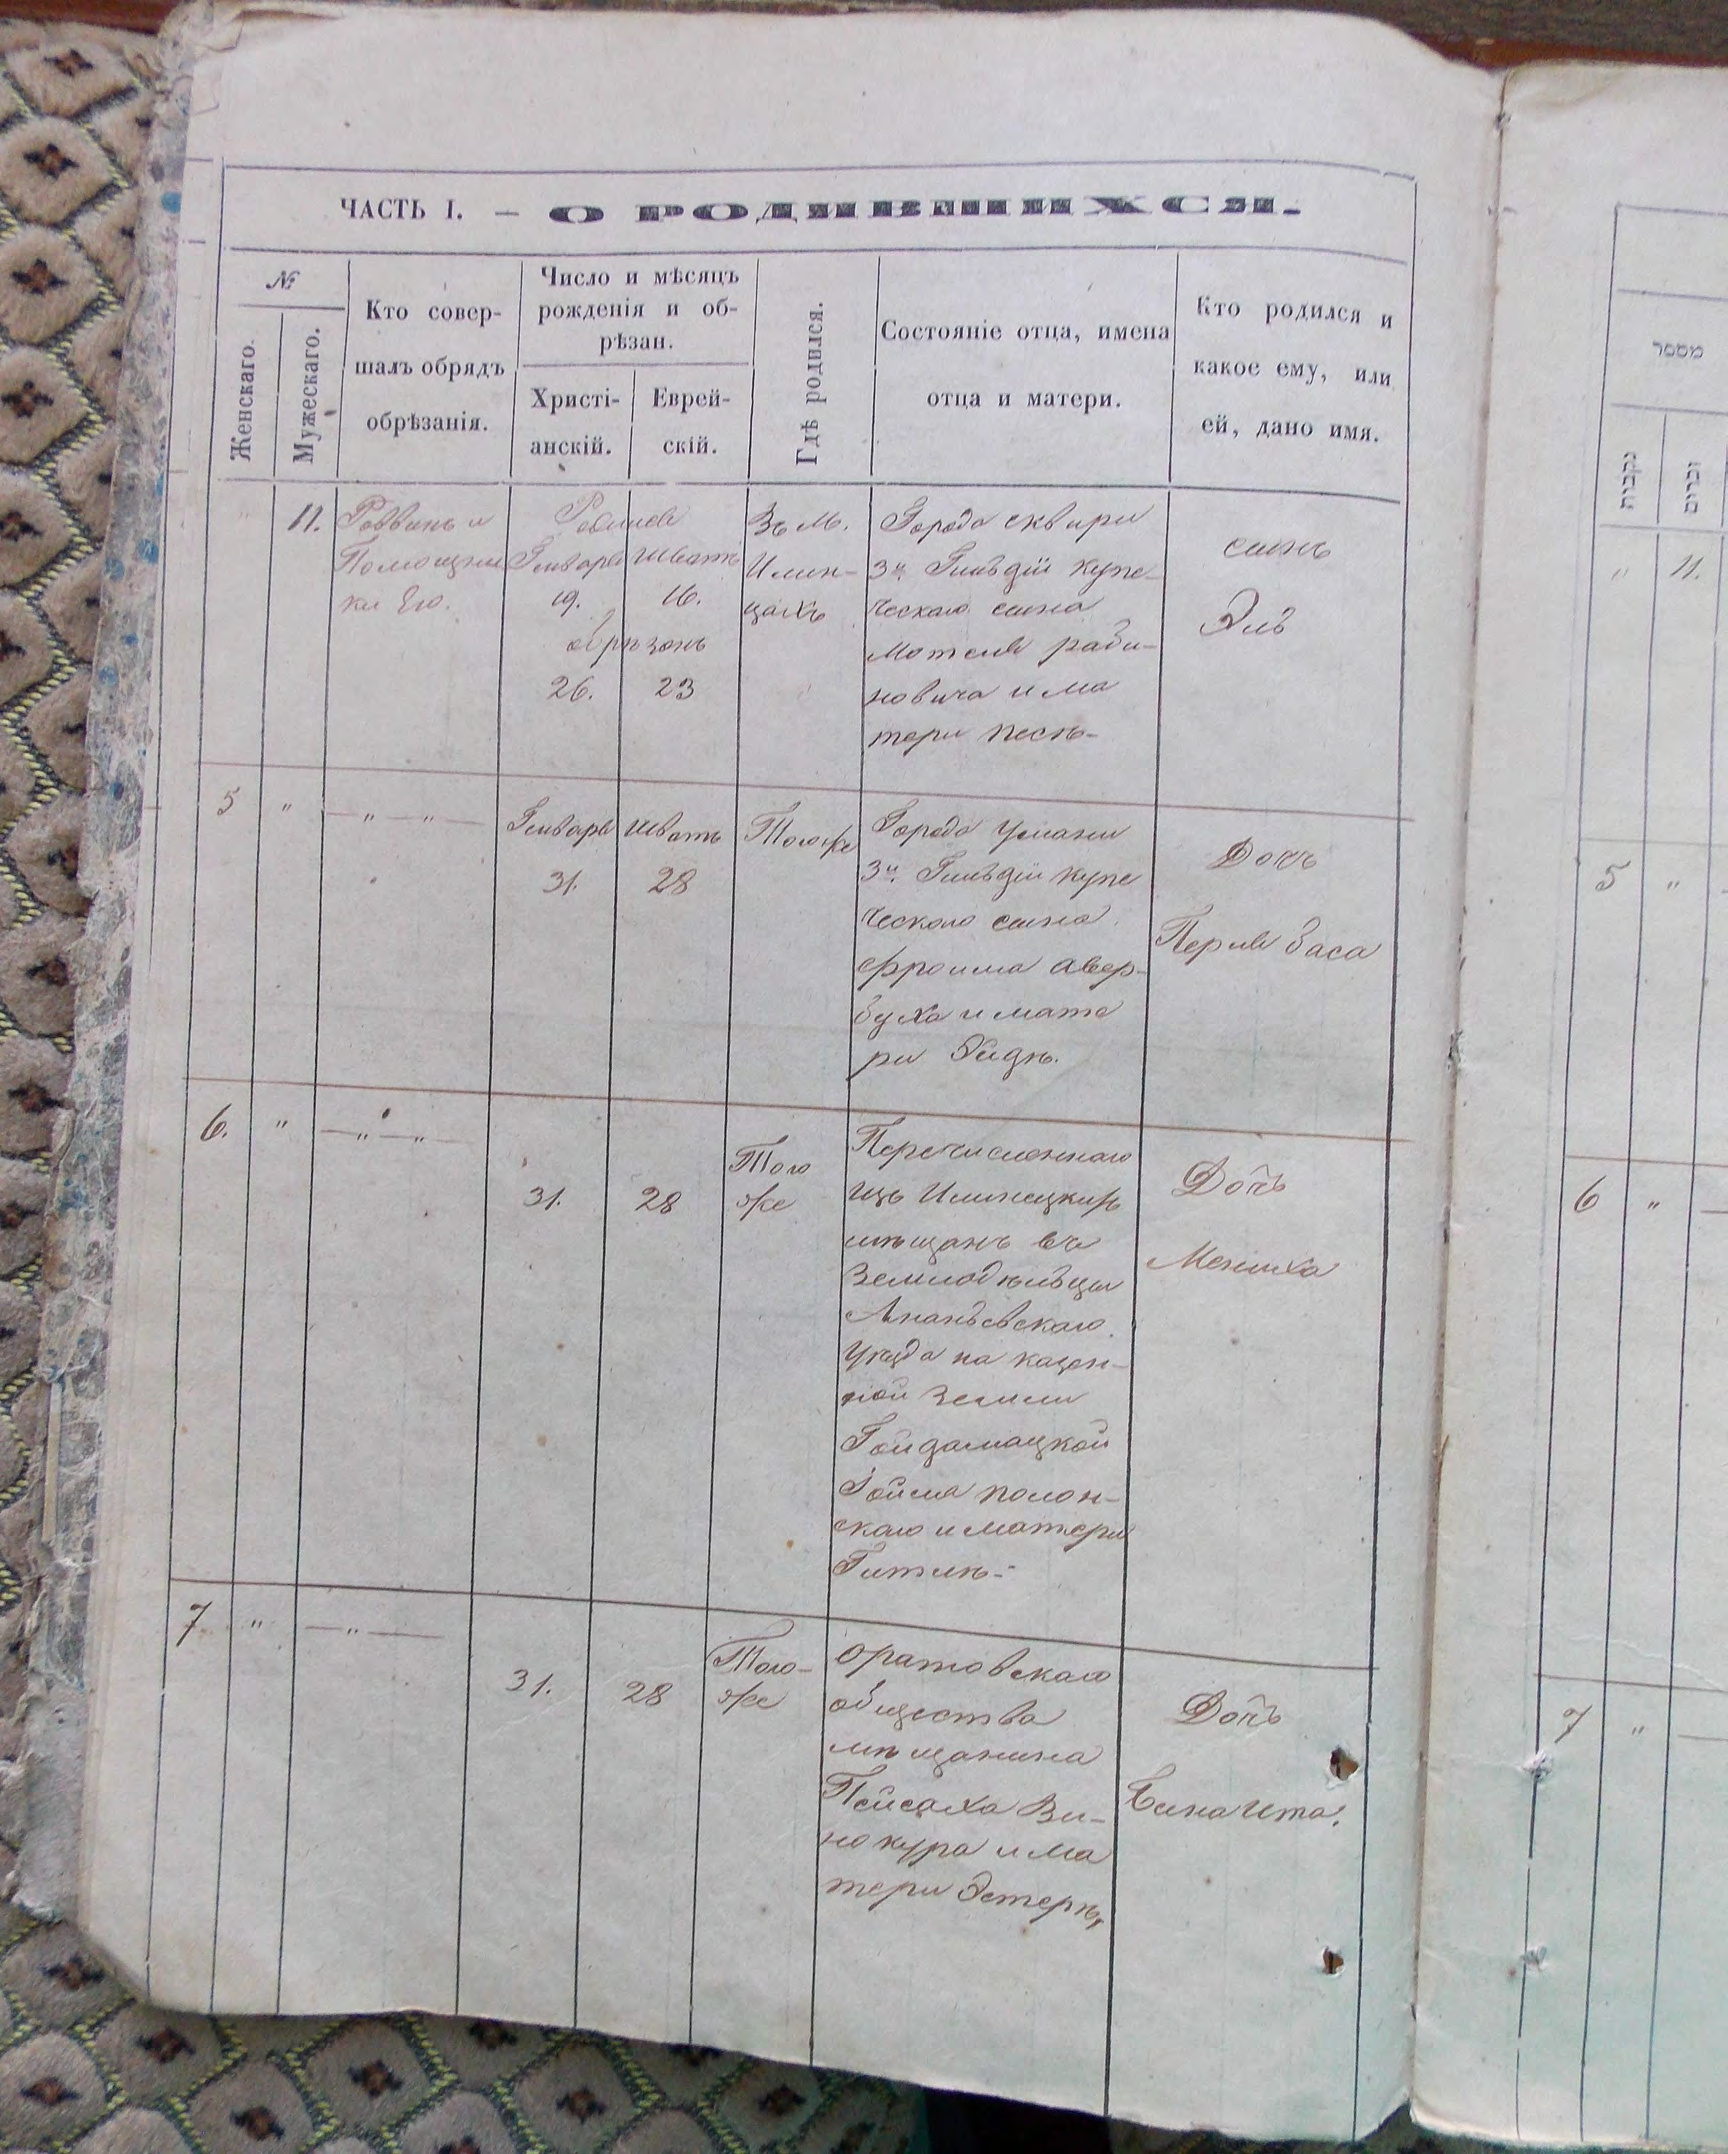 ЧАСТЬ I. — О РОДИВШИХСЯ.
№
Женскаго.
Мужескаго.
Кто совер-
шалъ обрядъ
обрѣзанія.
Число и мѣсяцъ
рожденія и об-
рѣзан.
Христі-
анскій.
Еврей-
скій.
Гдѣ родился.
Состояніе отца, имена
отца и матери.
Кто родился и
какое ему, или
ей, дано имя.
11.
Раввинъ и
Помощни
ки Его.
Родился
Генваря Шватъ
19. 16.
обрѣзанъ
26. 23
Въ М.
Илин-
цахъ
Города сквири
3й. Гильдіи купе-
ческаго сина
Мотеля раби-
новича и ма
тери Песѣ-
синъ
Эль
5 " — " — " —
Генваря Шватъ
31. 28
Тогоже
Города Умани
3й. Гильдіи купе
ческого сина
Фроима Авер-
буха и мате
ри Эйдѣ.
Дочъ
Перля Баса
6. " — " — " —
31. 28
Того
же
Перечисленнаго
изъ Илинецкихъ
мѣщанъ въ
Землодѣльци
Ананьевскаго
Уѣзда на казен-
ной Земли
Гойдамацкой
Іойма полон-
скаго и матери
Гитлѣ-
Дочъ
Мениха
7 " — " —
31. 28
Того-
же
Оратовскаго
общества
мѣщанина
Пейсаха Ви-
нокура и ма
тери Эстерѣ,
Дочъ
Бина Ита.
מספר
נקבות
זכרים
" 11.
5 "
6 "
7 "